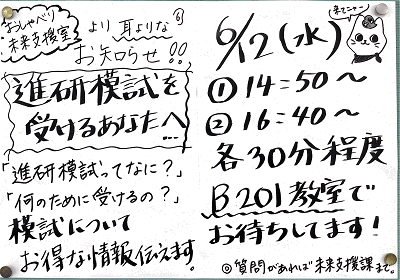 おしゃべり
未来支援室
より 耳よりな
お知らせ!!
進研模試を
受けるあなたへ…
「進研模試ってなに?」
「何のために受けるの?」
模試について
お得な情報伝えます。
来てニャー
6/12(水)
① 14:50〜
② 16:40〜
各30分程度
B201教室で
お待ちしてます!
◎質問があれば未来支援課まで。